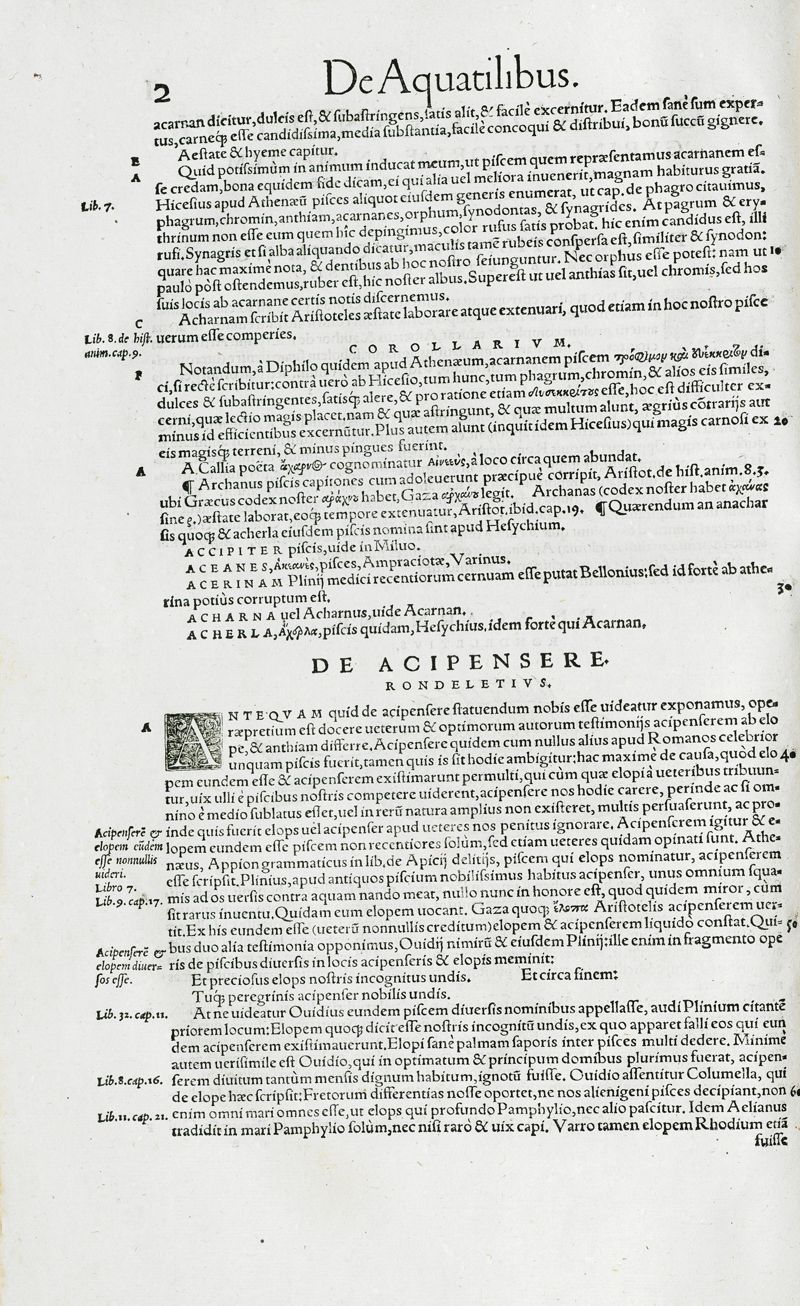 2
De Aquatilibus.
acarnan dicitur, dulcis est, & subastringens, satis alit, & facilè excernitur. Eadem sanè sum exper-
tus, carneq; esse candidissima, media substantia, facilè concoqui & distribui, bonū succū gignere.
B Aestate & hyeme capitur.
A Quid potissimùm in animum inducat meum, ut piscem quem repræsentamus acarnanem es-
se credam, bona equidem fide dicam, ei qui alia uel meliora inuenerit, magnam habiturus gratiā.
Lib. 7. Hicesius apud Athenæū pisces aliquot eiusdem generis enumerat, ut cap. de phagro citauimus,
phagrum, chromin, anthiam, acarnanes, orphum, synodontas, & synagrides. At pagrum & ery-
thrinum non esse eum quem hîc depingimus, color rufus satis probat. hic enim candidus est, illi
rufi. Synagris etsi alba aliquando dicatur, maculis tamē rubeis conspersa est, similiter & synodon:
quare hac maximè nota, & dentibus ab hoc nostro seiunguntur. Nec orphus esse potest: nam ut 10
paulò pòst ostendemus, ruber est, hic noster albus. Superest ut uel anthias sit, uel chromis, sed hos
suis locis ab acarnane certis notis discernemus.
C Acharnam scribit Aristoteles æstate laborare atque extenuari, quod etiam in hoc nostro pisce
Lib. 8. de hist. uerum esse comperies.
anim. cap. 9.
COROLLARIVM.
F Notandum, à Diphilo quidem apud Athenæum, acarnanem piscem τρόφιμον καὶ εὐέκκριτον di-
ci, si rectè scribitur: contrà uerò ab Hicesio, tum hunc, tum phagrum, chromin, & alios eis similes,
dulces & subastringentes, satisq; alere, & pro ratione etiam δυσεκκρίτους esse, hoc est difficulter ex-
cerni, quæ lectio magis placet. nam & quæ astringunt, & quæ multum alunt, ægrius cōtrarijs aut
minus id efficientibus excernūtur. Plus autem alunt (inquit idem Hicesius) qui magis carnosi ex 20
eis magisq; terreni, & minus pingues fuerint.
A A Callia poëta ἄχαρνος cognominatur Αἰνεὺς, à loco circa quem abundat.
¶ Archanus piscis capitones cum adoleuerunt præcipuè corripit, Aristot. de hist. anim. 8. 3.
ubi Græcus codex noster habet, Gaza legit. Archanas (codex noster habet ἀχαρνας
sine ρ.) æstate laborat, eoq; tempore extenuatur, Aristot. ibid. cap. 19. ¶ Quærendum an anachar
sis quoq; & acherla eiusdem piscis nomina sint apud Hesychium.
ACCIPITER piscis, uide in Miluo.
ACEANES, Ἀκεανὲς, pisces, Ampraciotæ, Varinus.
ACERINAM Plinij medici recentiorum cernuam esse putat Bellonius: sed id fortè ab athe- 30
rina potiùs corruptum est.
ACHARNA uel Acharnus, uide Acarnan.
ACHERLA, Ἀχέρλα, piscis quidam, Hesychius. idem fortè qui Acarnan.
DE ACIPENSERE.
RONDELETIVS.
A ANTEQVAM quid de acipensere statuendum nobis esse uideatur exponamus, ope-
ræpretium est docere ueterum & optimorum autorum testimonijs acipenserem ab elo
pe, & anthiam differre. Acipensere quidem cum nullus alius apud Romanos celebrior
unquam piscis fuerit, tamen quis is sit hodie ambigitur: hac maximè de causa, quod elo 40
pem eundem esse & acipenserem existimarunt permulti, qui cùm quæ elopi à ueteribus tribuun-
tur, uix ulli è piscibus nostris competere uiderent, acipensere nos hodie carere, perinde ac si om-
nino è medio sublatus esset, uel in rerū natura amplius non existeret, multis persuaserunt, ac pro-
Acipenserē & inde quis fuerit elops uel acipenser apud ueteres nos penitus ignorare. Acipenserem igitur & e-
elopem eūdem lopem eundem esse piscem non recentiores solùm, sed etiam ueteres quidam opinati sunt. Athe-
esse nonnullis næus, Appion grammaticus in lib. de Apicij delitijs, piscem qui elops nominatur, acipenserem
uideri. esse scripsit. Plinius, apud antiquos piscium nobilissimus habitus acipenser, unus omnium squa-
Libro 7.
Lib. 9. cap. 17. mis ad os uersis contra aquam nando meat, nullo nunc in honore est, quod quidem miror, cùm
sit rarus inuentu. Quidam eum elopem uocant. Gaza quoq; ἔλοπα Aristotelis acipenserem uer-
tit. Ex his eundem esse (ueterū nonnullis creditum) elopem & acipenserem liquidò constat. Qui- 50
Acipenserē & bus duo alia testimonia opponimus, Ouidij nimirū & eiusdem Plinij: ille enim in fragmento ope
elopem diuer- ris de piscibus diuersis in locis acipenseris & elopis meminit:
sos esse. Et preciosus elops nostris incognitus undis. Et circa finem:
Tuq; peregrinis acipenser nobilis undis.
Lib. 32. cap. 11. At ne uideatur Ouidius eundem piscem diuersis nominibus appellasse, audi Plinium citantē
priorem locum: Elopem quoq; dicit esse nostris incognitū undis, ex quo apparet falli eos qui eun
dem acipenserem existimauerunt. Elopi sanè palmam saporis inter pisces multi dedere. Minimè
autem uerisimile est Ouidio, qui in optimatum & principum domibus plurimus fuerat, acipen-
Lib. 8. cap. 16. serem diuitum tantùm mensis dignum habitum, ignotū fuisse. Ouidio assentitur Columella, qui
de elope hæc scripsit: Fretorum differentias nosse oportet, ne nos alienigeni pisces decipiant, non 60
Lib. 11. cap. 21. enim omni mari omnes esse, ut elops qui profundo Pamphylio, nec alio pascitur. Idem Aelianus
tradidit in mari Pamphylio solùm, nec nisi rarò & uix capi. Varro tamen elopem Rhodium etiā
fuisse